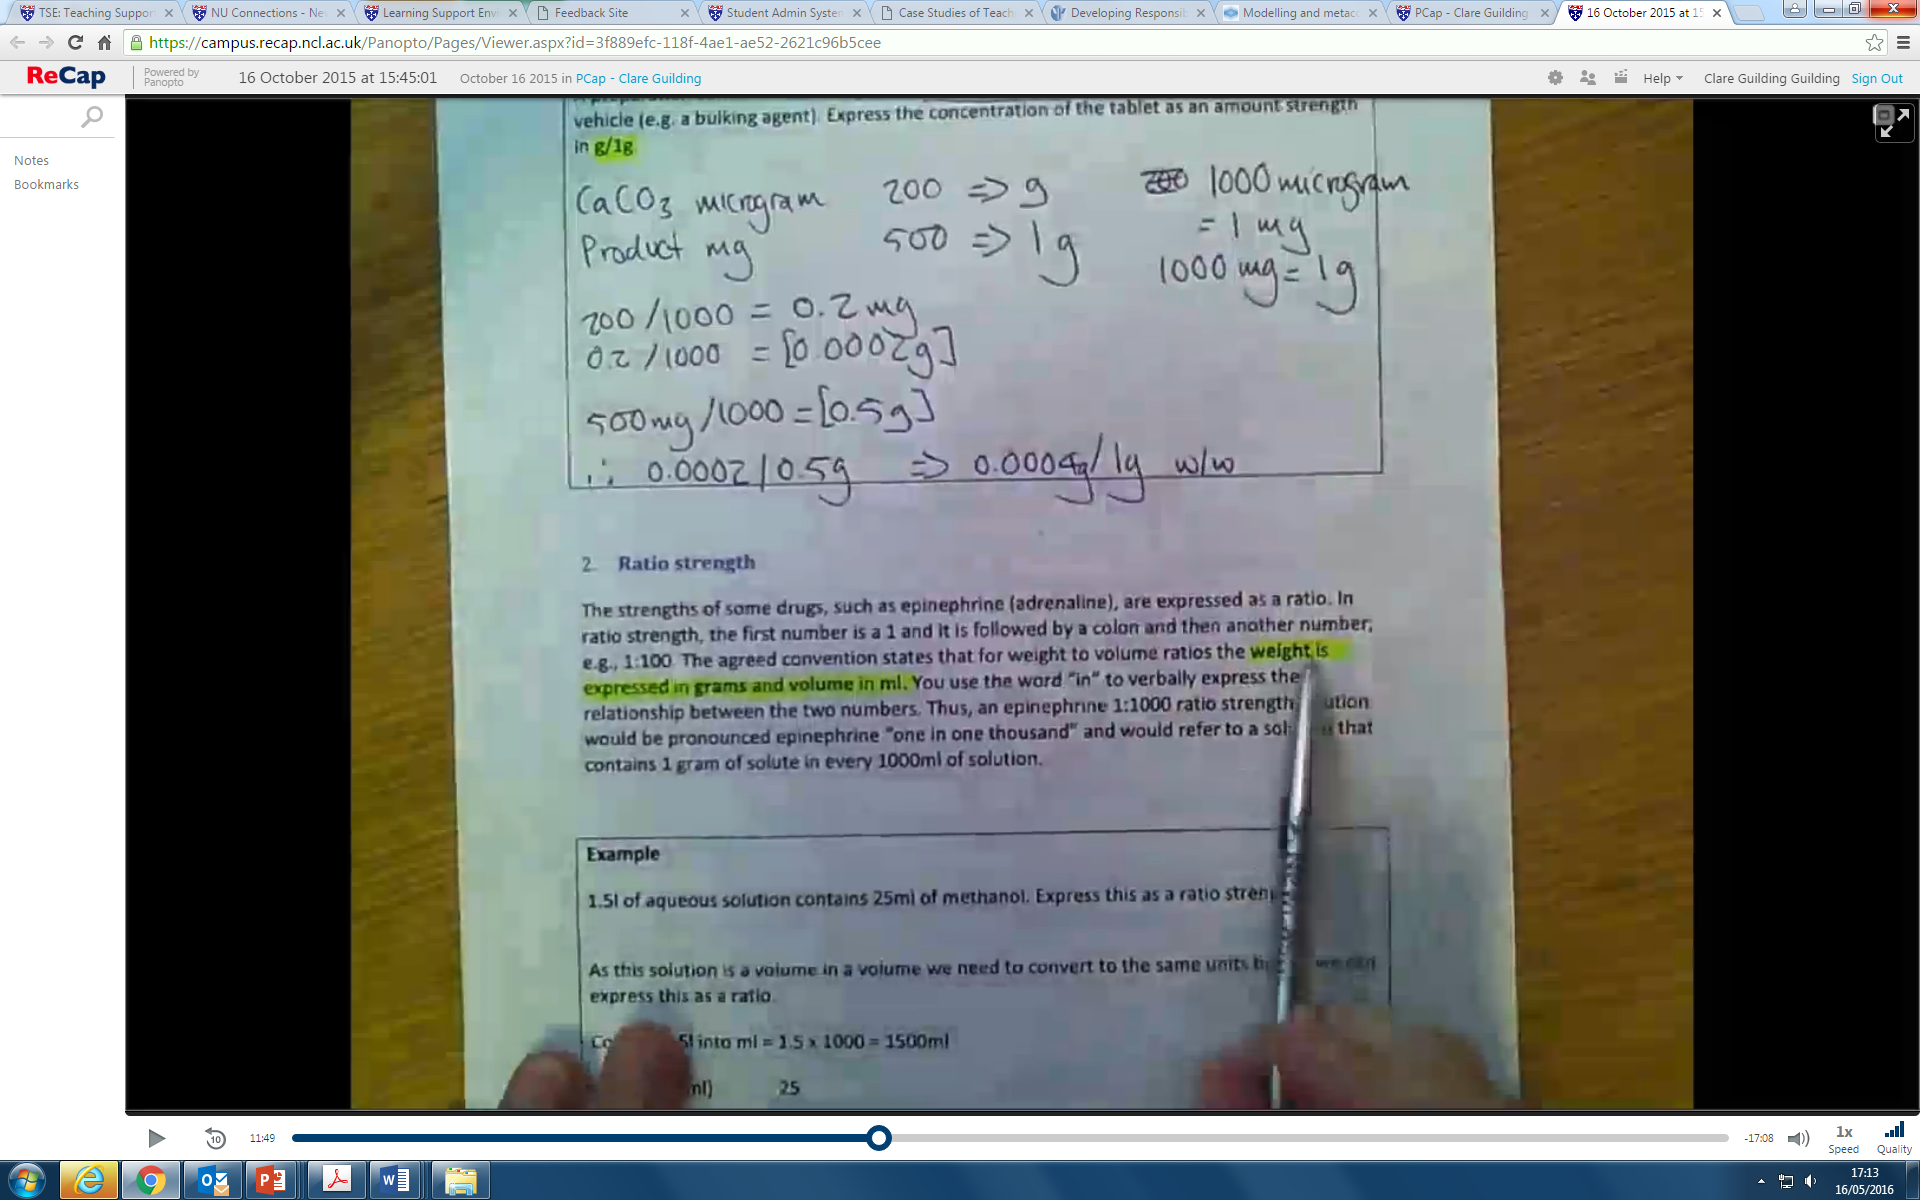 TSE: Teaching Suppor
NU Connections - Ne
Learning Support Env
Feedback Site
Student Admin System
Case Studies of Teach
Developing Responsib
Modelling and metac
PCap - Clare Guilding
16 October 2015 at 15
https://campus.recap.ncl.ac.uk/Panopto/Pages/Viewer.aspx?id=3f889efc-118f-4ae1-ae52-2621c96b5cee
ReCap
Powered by
Panopto
16 October 2015 at 15:45:01
October 16 2015 in PCap - Clare Guilding
Help
Clare Guilding Guilding
Sign Out
Notes
Bookmarks
vehicle (e.g. a bulking agent). Express the concentration of the tablet as an amount strength
in g/1g
CaCO3 microgram 200 => g 1000 microgram
Product mg 500 => 1g = 1 mg
1000 mg = 1g
200/1000 = 0.2 mg
0.2/1000 = [0.0002g]
500mg/1000 = [0.5g]
∴ 0.0002/0.5g => 0.0004g/1g w/w
2. Ratio strength
The strengths of some drugs, such as epinephrine (adrenaline), are expressed as a ratio. In
ratio strength, the first number is a 1 and it is followed by a colon and then another number,
e.g., 1:100. The agreed convention states that for weight to volume ratios the weight is
expressed in grams and volume in ml. You use the word "in" to verbally express the
relationship between the two numbers. Thus, an epinephrine 1:1000 ratio strength ution
would be pronounced epinephrine "one in one thousand" and would refer to a sol that
contains 1 gram of solute in every 1000ml of solution.
Example
1.5l of aqueous solution contains 25ml of methanol. Express this as a ratio stren
As this solution is a volume in a volume we need to convert to the same units we can
express this as a ratio.
Co 5l into ml = 1.5 x 1000 = 1500ml
ml) 25
10
11:49
-17:08
1x
Speed
Quality
17:13
16/05/2016